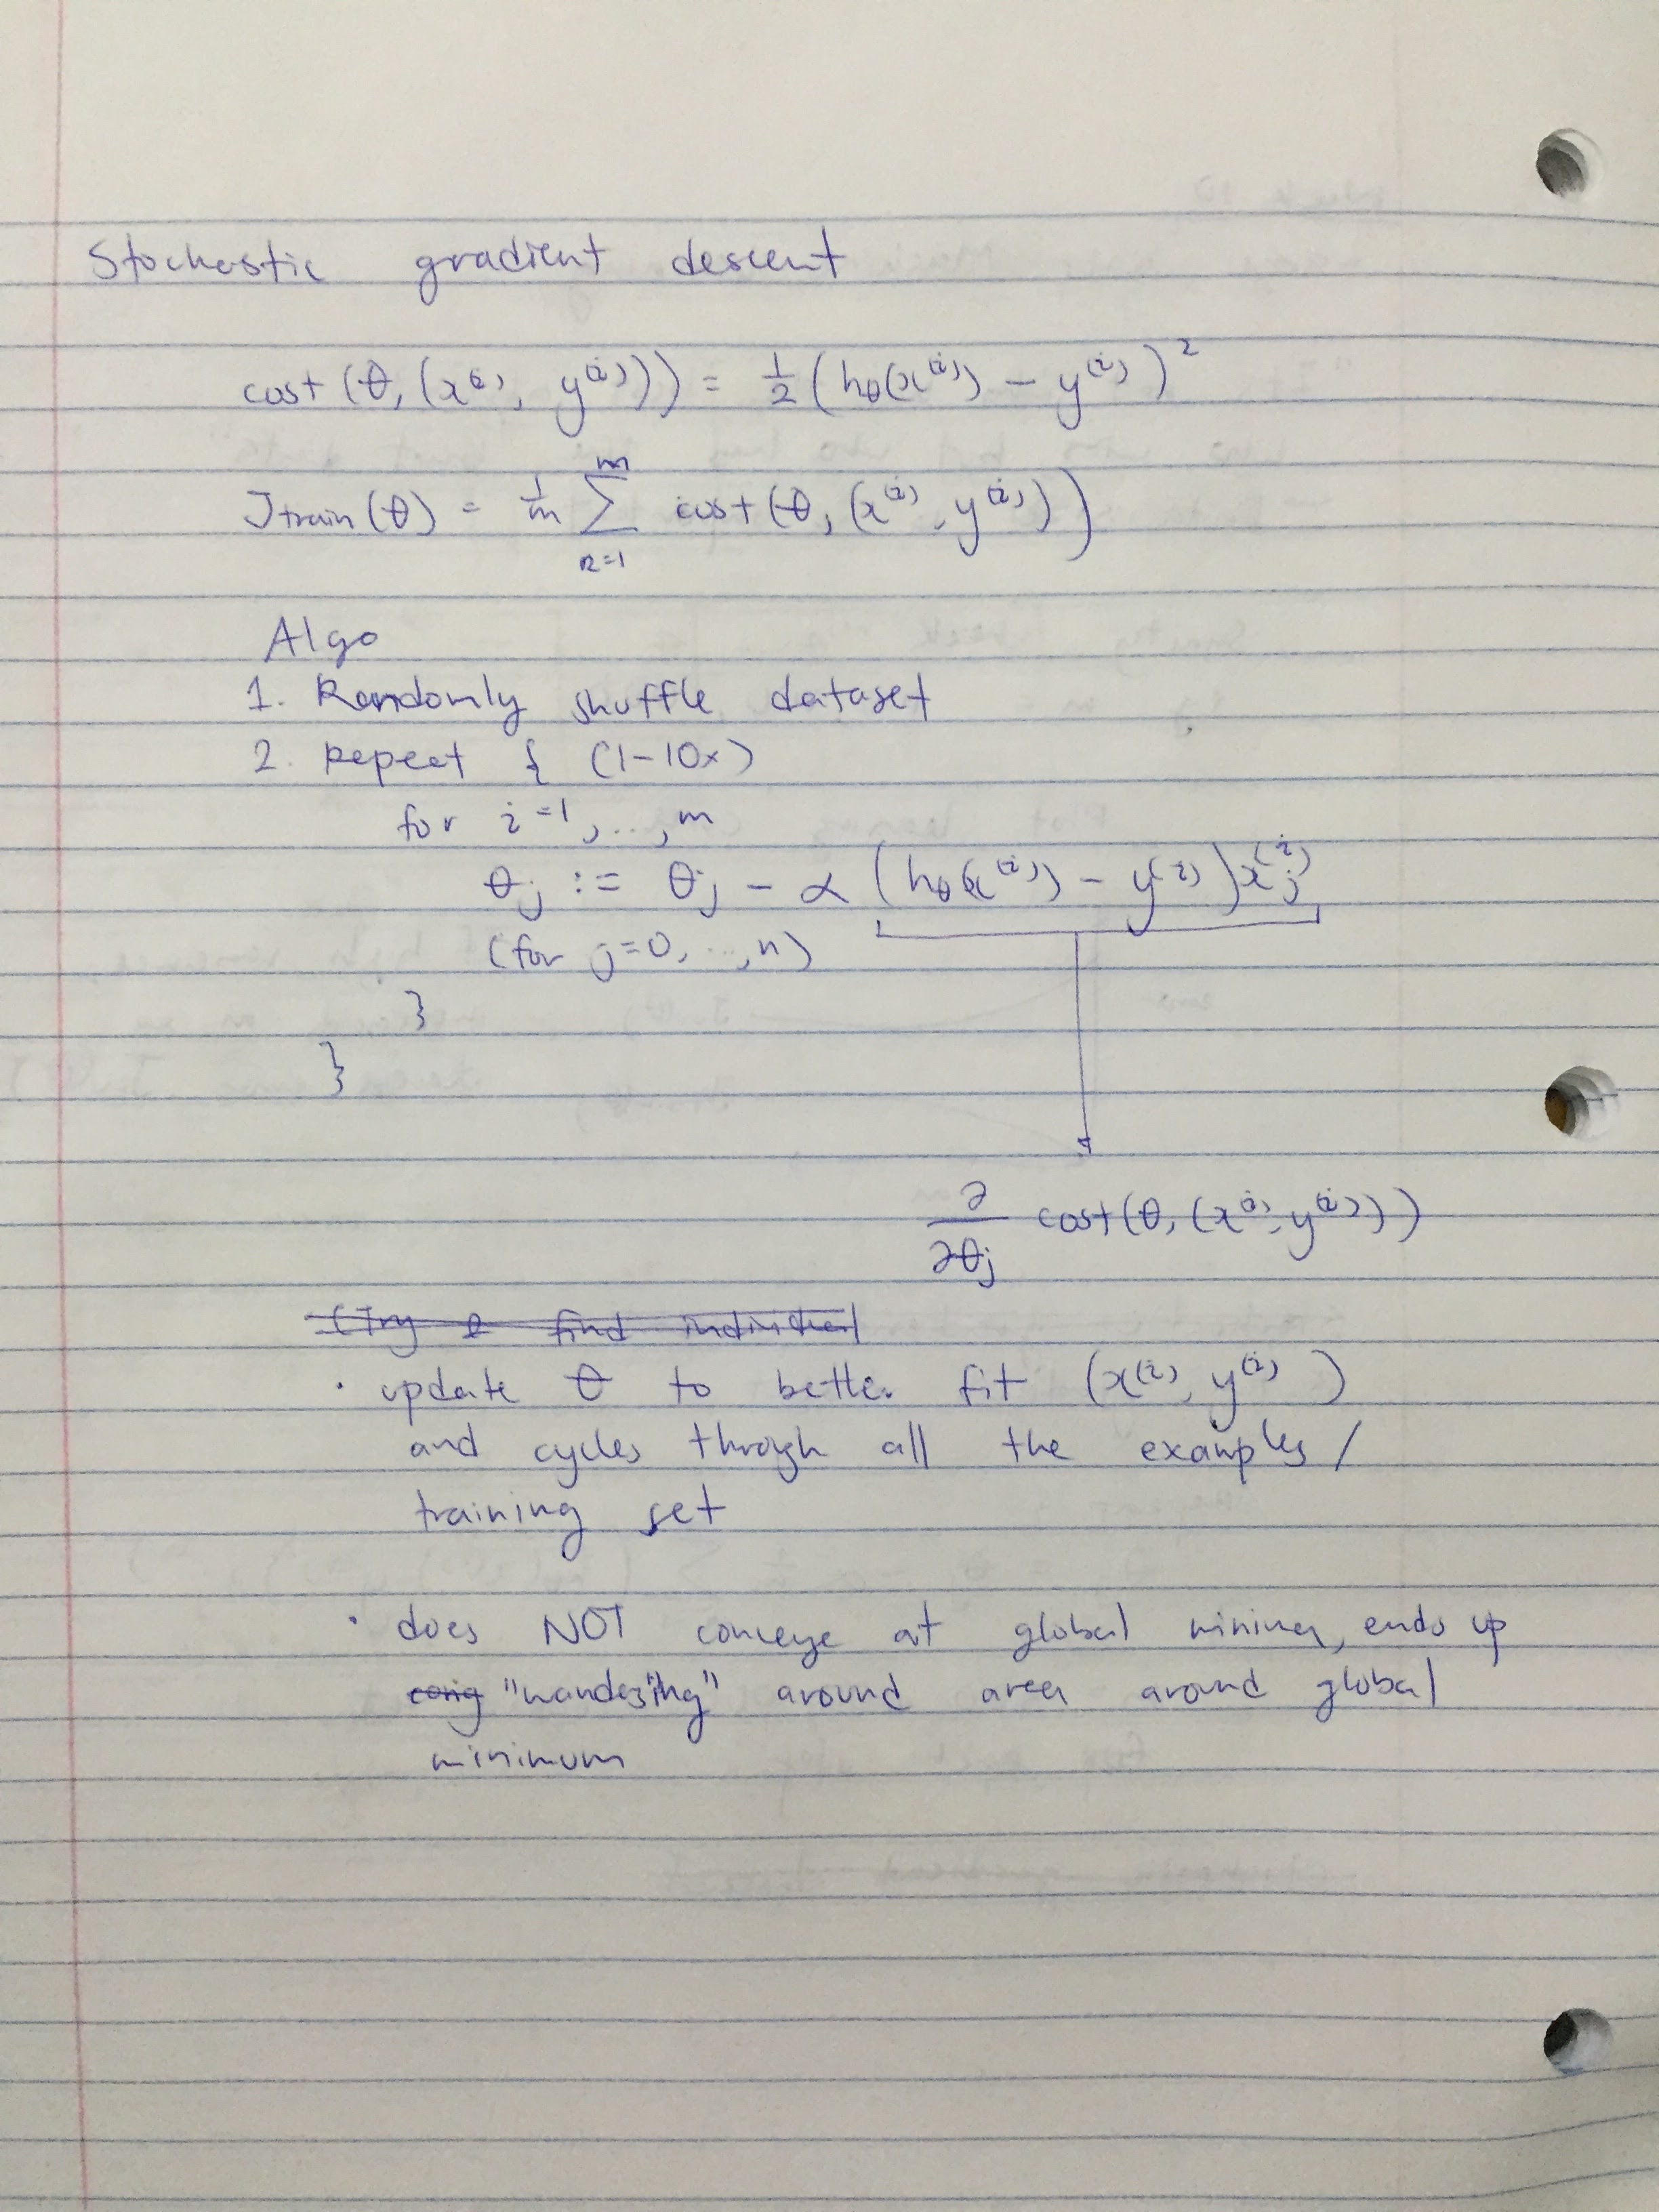 Stochastic gradient descent
cost (θ, (x⁽ⁱ⁾, y⁽ⁱ⁾)) = 1/2 (hθ(x⁽ⁱ⁾) - y⁽ⁱ⁾)²
Jtrain(θ) = 1/m ∑ᵐₙ₌₁ cost (θ, (x⁽ⁱ⁾, y⁽ⁱ⁾))
Algo
1. Randomly shuffle dataset
2. Repeat { (1-10x)
for i=1,...,m
θj := θj - α (hθ(x⁽ⁱ⁾) - y⁽ⁱ⁾)xj⁽ⁱ⁾
(for j=0,...,n)
}
}
∂/∂θj cost (θ, (x⁽ⁱ⁾, y⁽ⁱ⁾))
(Try 2 find individual
· update θ to better fit (x⁽ⁱ⁾, y⁽ⁱ⁾)
and cycles through all the examples /
training set
· does NOT converge at global minima, ends up
"wandering" around area around global
minimum